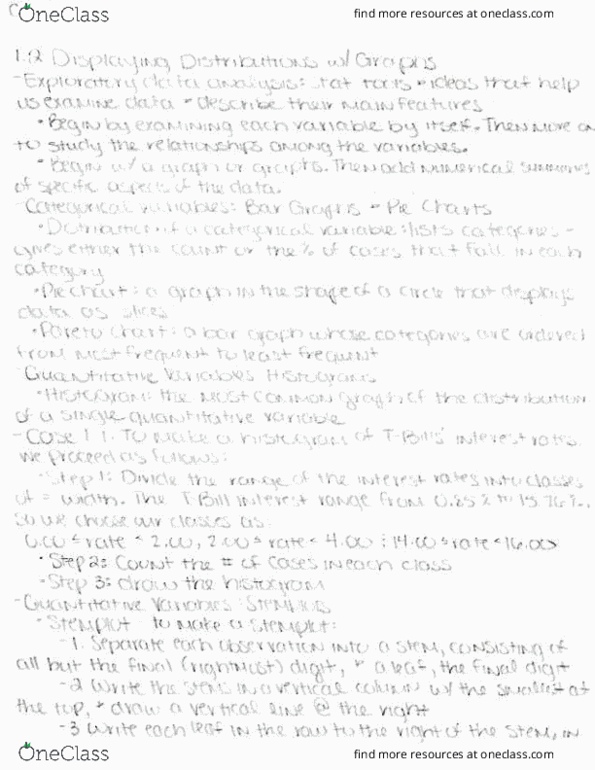 OneClass
find more resources at oneclass.com
1.2 Displaying Distributions w/ Graphs
-Exploratory data analysis: stat tools + ideas that help
us examine data + describe their main features
•Begin by examining each variable by itself. Then move on
to study the relationships among the variables.
•Begin w/ a graph or graphs. Then add numerical summaries
of specific aspects of the data.
-Categorical variables: Bar Graphs + Pie Charts
•Distribution of a categorical variable: lists categories +
gives either the count or the % of cases that fall in each
category
•Pie chart: a graph in the shape of a circle that displays
data as slices
•Pareto chart: a bar graph whose categories are ordered
from most frequent to least frequent
Quantitative Variables Histograms
•Histogram: the most common graph of the distribution
of a single quantitative variable
-Case 1.1: To make a histogram of T-Bills' interest rates,
we proceed as follows:
-Step 1: Divide the range of the interest rates into classes
of = width. The T-Bill interest range from 0.85% to 15.76%,
so we choose our classes as:
0.00 ≤ rate < 2.00, 2.00 ≤ rate < 4.00 ⋮ 14.00 ≤ rate < 16.00
•Step 2: Count the # of cases in each class
-Step 3: draw the histogram
-Quantitative Variables: Stemplots
-Stemplot - to make a stemplot:
-1. Separate each observation into a stem, consisting of
all but the final (rightmost) digit, + a leaf, the final digit
-2 Write the stems in a vertical column w/ the smallest at
the top, + draw a vertical line @ the right
-3 Write each leaf in the row to the right of the stem, in
OneClass
find more resources at oneclass.com